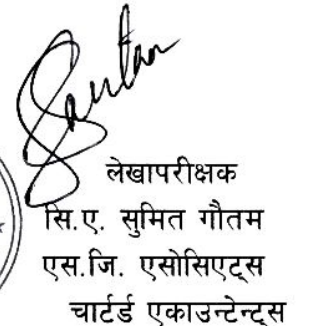 लेखापरीक्षक
सि.ए. सुमित गौतम
एस.जि. एसोसिएट्स
चार्टर्ड एकाउन्टेन्ट्स